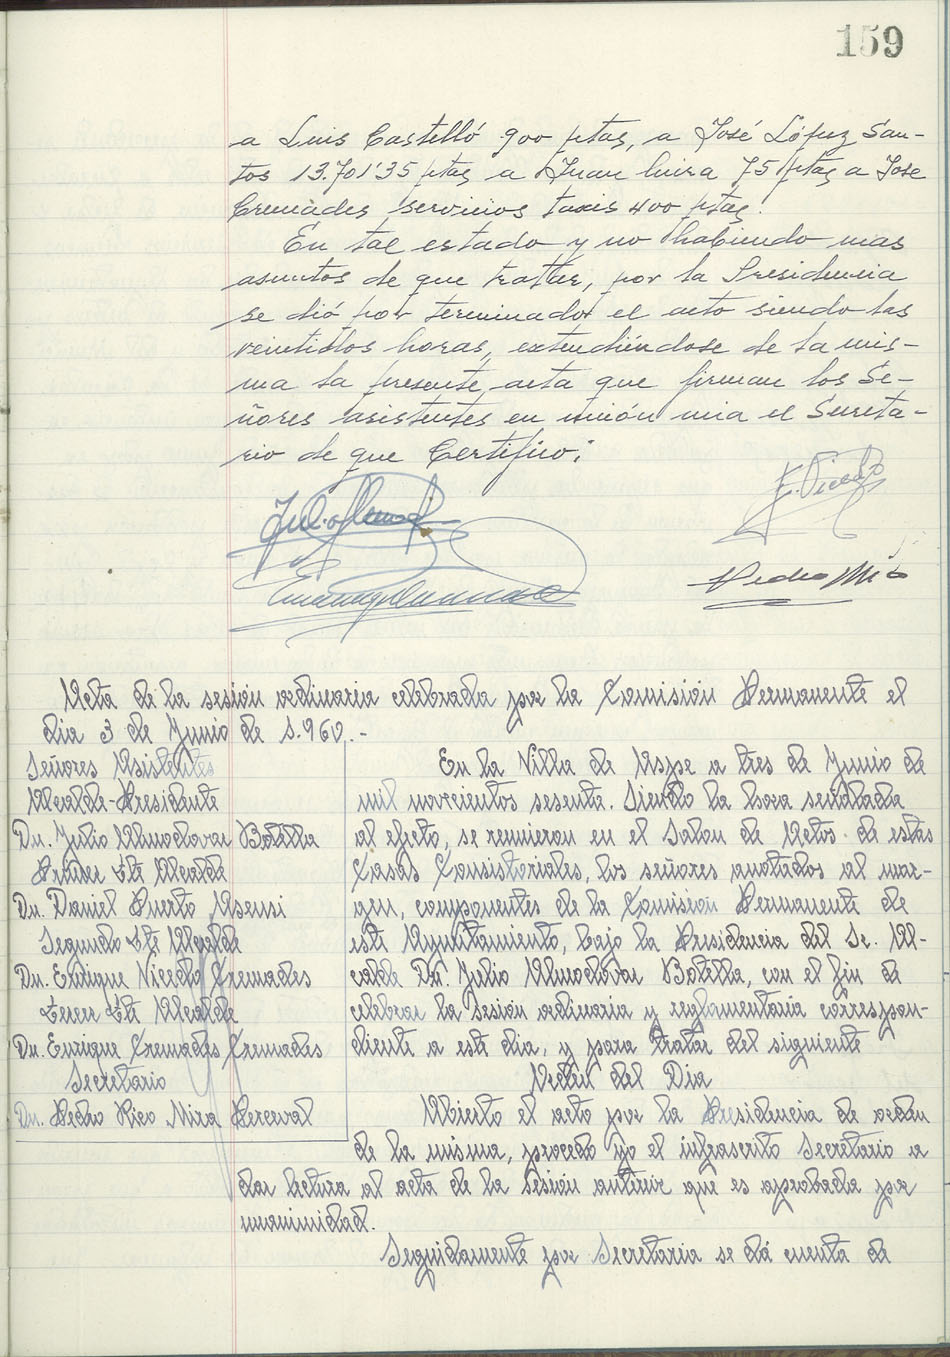 159
a Luis Castelló 900 ptas, a José López San-
tos 13.701'35 ptas a Juan 75 ptas a Jose
Cremades servicios taxis 400 ptas.
En tal estado y no habiendo mas
asuntos de que tratar, por la Presidencia
se dió por terminado el acto siendo las
veintidos horas, extendiéndose de la mis-
ma la presente acta que firman los Se-
ñores asistentes en unión mia el Secreta-
rio de que Certifico:
Julio Almodovar
E. Vicedo
Pedro
Acta de la sesión ordinaria celebrada por la Comisión Permanente el
dia 3 de Junio de 1.960.-
Señores Asistentes
Alcalde-Presidente
Dn. Julio Almodovar Botella
Primer Tte Alcalde
Dn. Daniel Puerto Asensi
Segundo Tte Alcalde
Dn. Enrique Vicedo Cremades
Tercer Tte Alcalde
Dn. Enrique Cremades Cremades
Secretario
Dn. Pedro Rico Mira Perceval
En la Villa de Aspe a tres de Junio de
mil novecientos sesenta. Siendo la hora señalada
al efecto, se reunieron en el Salon de Actos de estas
Casas Consistoriales, los señores anotados al mar-
gen, componentes de la Comisión Permanente de
este Ayuntamiento, bajo la Presidencia del Sr. Al-
calde Dn. Julio Almodovar Botella, con el fin de
celebrar la sesión ordinaria y reglamentaria correspon-
diente a este dia, y para tratar del siguiente
Orden del Dia
Abierto el acto por la Presidencia de orden
de la misma, procedo yo el infrascrito Secretario a
dar lectura al acta de la sesión anterior que es aprobada por
unanimidad.
Seguidamente por Secretaria se dá cuenta de